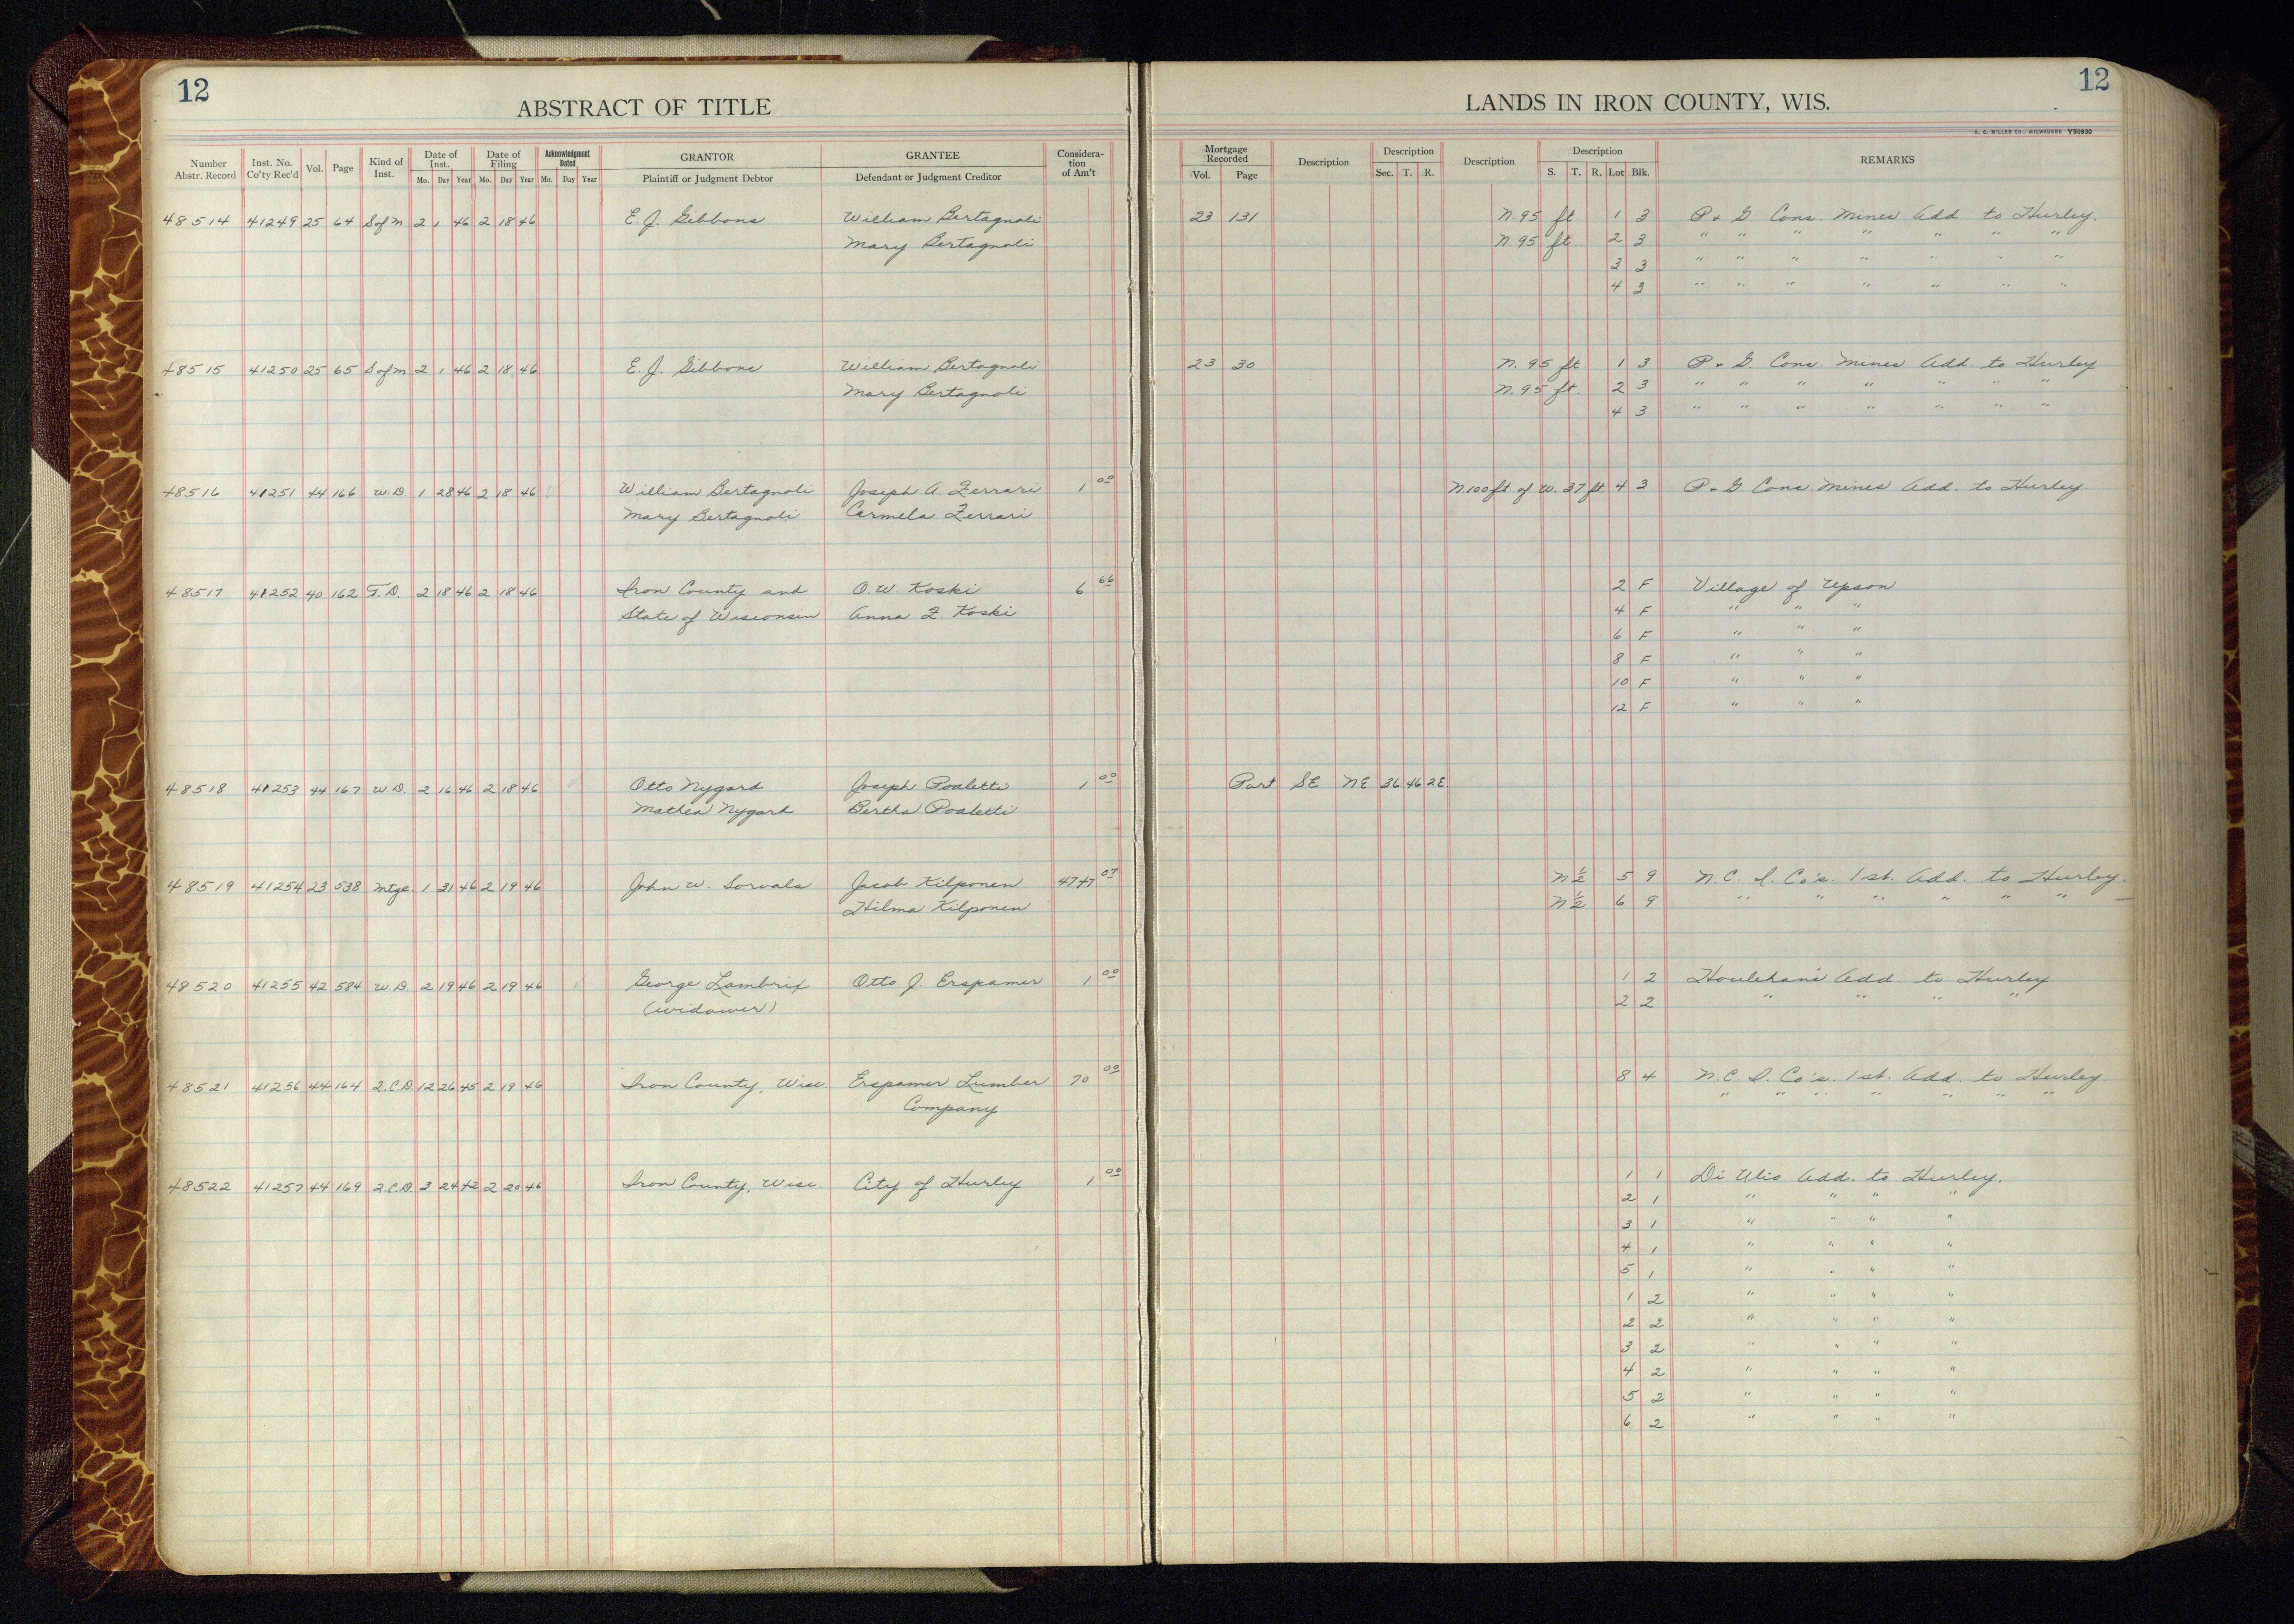 12
ABSTRACT OF TITLE
Number Abstr. Record | Inst. No. Co'ty Rec'd | Vol. | Page | Kind of Inst. | Date of Inst. Mo. Day Year | Date of Filing Mo. Day Year | Acknowledgment Dated Mo. Day Year | GRANTOR Plaintiff or Judgment Debtor | GRANTEE Defendant or Judgment Creditor | Consideration of Am't
48514 41249 25 64 S of M 2 1 46 2 18 46 E. J. Gibbons William Bertagnoli
Mary Bertagnoli
48515 41250 25 65 S of M 2 1 46 2 18 46 E. J. Gibbons William Bertagnoli
Mary Bertagnoli
48516 41251 44 166 W.D. 1 28 46 2 18 46 William Bertagnoli Joseph A. Ferrari 1 00
Mary Bertagnoli Carmela Ferrari
48517 41252 40 162 T.D. 2 18 46 2 18 46 Iron County and O. W. Koski 6 66
State of Wisconsin Anna F. Koski
48518 41253 44 167 W.D. 2 16 46 2 18 46 Otto Nygard Joseph Poaletti 1 00
Mathea Nygard Bertha Poaletti
48519 41254 23 538 Mtge. 1 31 46 2 19 46 John W. Sorvala Jacob Kilponen 4747 07
Hilma Kilponen
48520 41255 42 584 W.D. 2 19 46 2 19 46 George Lambrix Otto J. Erspamer 1 00
(widower)
48521 41256 44 164 Q.C.D. 12 26 45 2 19 46 Iron County, Wisc. Erspamer Lumber 70 00
Company
48522 41257 44 169 Q.C.D. 3 24 42 2 20 46 Iron County, Wisc. City of Hurley 1 00
12
LANDS IN IRON COUNTY, WIS.
H. C. MILLER CO., MILWAUKEE Y50930
Mortgage Recorded Vol. Page | Description | Description Sec. T. R. | Description | Description S. T. R. Lot Blk. | REMARKS
23 131 N. 95 ft. 1 3 P. & G. Cons. Mines Add. to Hurley.
N. 95 ft. 2 3 " " " " " " "
3 3 " " " " " " "
4 3 " " " " " " "
23 30 N. 95 ft 1 3 P. & G. Cons. Mines Add. to Hurley
N. 95 ft. 2 3 " " " " " " "
4 3 " " " " " " "
N. 100 ft. of W. 37 ft. 4 3 P. & G. Cons. Mines Add. to Hurley.
2 F Village of Upson
4 F " " "
6 F " " "
8 F " " "
10 F " " "
12 F " " "
Part SE NE 36 46 2E.
N ½ 5 9 N. C. I. Co's. 1st. Add. to Hurley.
N ½ 6 9 " " " " " "
1 2 Houlehan's Add. to Hurley
2 2 " " " "
8 4 N. C. I. Co's. 1st. Add. to Hurley.
" " " " " " "
1 1 Di Ulio Add. to Hurley.
2 1 " " " "
3 1 " " " "
4 1 " " " "
5 1 " " " "
1 2 " " " "
2 2 " " " "
3 2 " " " "
4 2 " " " "
5 2 " " " "
6 2 " " " "